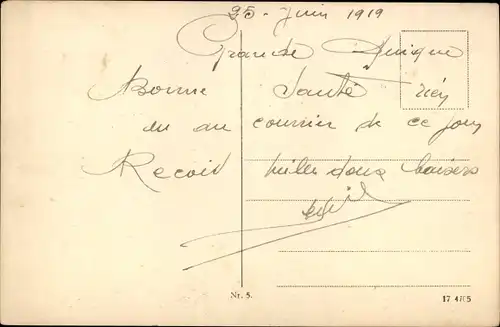 25 - Juin 1919
Grande
Bonne Santé rien
au courrier de ce jour
Recois mille doux baisers
Nr. 5.
17 4765